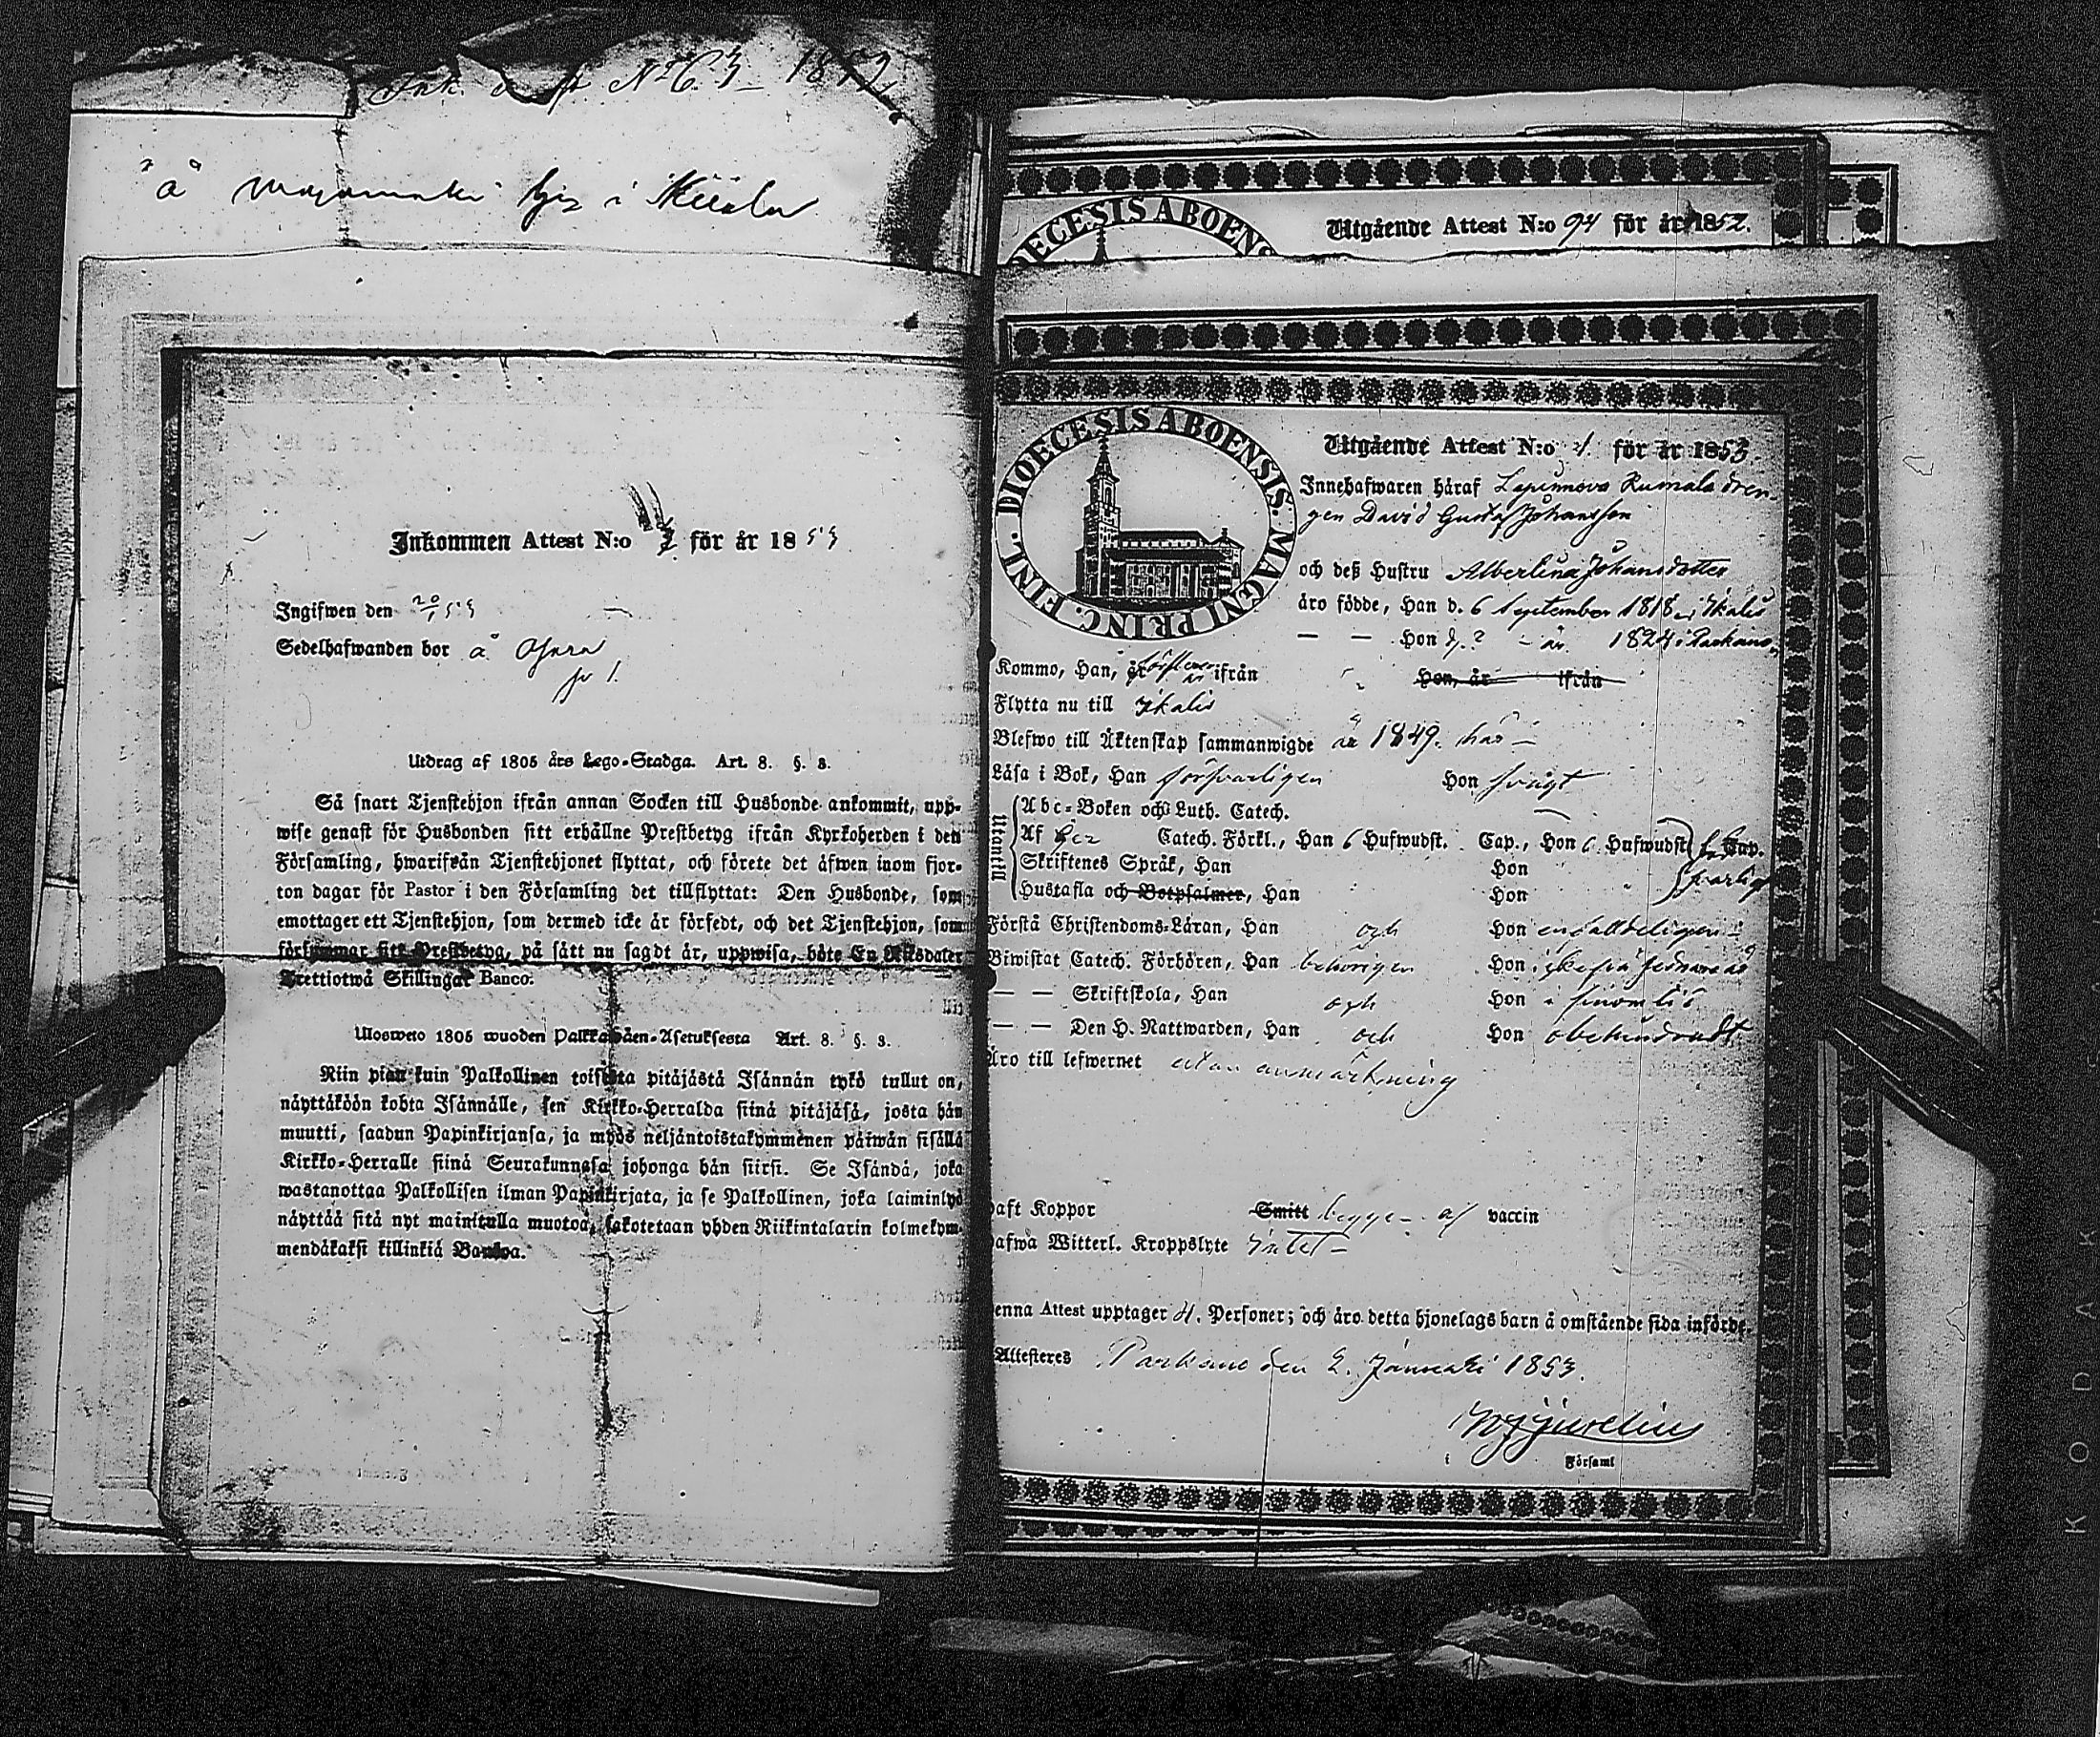 Ink. N:o 63 1852
"å" i
Inkommen Attest N:o för år 1853
Ingifwen den 20/1 53
Sedelhafwanden bor å
Utdrag af 1805 års Lego-Stadga. Art. 8. §. 3.
Så snart Tjenstehjon ifrån annan Socken till Husbonde ankommit, upp-
wise genast för Husbonden sitt erhållne Prestbetyg ifrån Kyrkoherden i den
Församling, hwarifrån Tjenstehjonet flyttat, och förete det äfwen inom fjor-
ton dagar för Pastor i den Församling det tillflyttat: Den Husbonde, som
emottager ett Tjenstehjon, som dermed icke är försedt, och det Tjenstehjon, som
försummar sitt Prestbetyg, på sätt nu sagdt är, uppwisa, böte En Riksdaler
Trettiotwå Skillingar Banco.
Ulosweto 1805 wuoden Palkkawäen-Asetuksesta Art. 8. §. 3.
Niin pian kuin Palkollinen toisesta pitäjästä Isännän tykö tullut on,
näyttäköön kohta Isännälle, sen Kirkko-Herralda siinä pitäjäsä, josta hän
muutti, saadun Papinkirjansa, ja myös neljäntoistakymmenen päiwän sisällä
Kirkko-Herralle siinä Seurakunnasa johonga hän siirsi. Se Isändä, joka
wastanottaa Palkollisen ilman Papinkirjata, ja se Palkollinen, joka laiminlyö
näyttää sitä nyt mainitulla muotoa, sakotetaan yhden Riikintalarin kolmekym-
mendäkaksi killinkiä Bankoa.
DIOECESIS ABOENS
Utgående Attest N:o 94 för år 1852.
DIOECESIS ABOENSIS. MAGNI PRINC. FINL.
Utgående Attest N:o 4. för år 1853.
Innehafwaren häraf Rumala dren-
gen David Gustaf Johansson
och deß Hustru Albertina Johansdotter
äro födde, Han d. 6 September 1818 i Ikalis
— — Hon d. ? — år 1824 i Parkano
Kommo, Han, år ifrån Hon, år ifrån
Flytta nu till Ikalis
Blefwo till Äktenskap sammanwigde år 1849. här —
Läsa i Bok, Han försvarligen Hon svagt
Utantill
Abc-Boken och Luth. Catech.
Af Catech. Förkl., Han 6 Hufwudst. Cap., Hon 6 Hufwudst. Cap.
Skriftenes Språk, Han Hon
Hustafla och Botpsalmer, Han Hon
Förstå Christendoms-Läran, Han och Hon enfaldeligen
Biwistat Catech. Förhören, Han behörigen Hon
— — Skriftskola, Han och Hon
— — Den H. Nattwarden, Han och Hon obehindradt
Äro till lefwernet utan anmärkning
Haft Koppor Smitt begge af vaccin
Hafwa Witterl. Kroppslyte intet —
Denna Attest upptager 4. Personer; och äro detta hjonelags barn å omstående sida införde.
Attesteres Parkano den 2. Januarii 1853.
Församl
KODAK